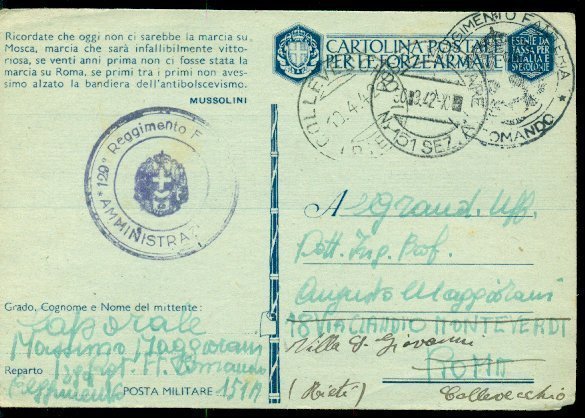 Ricordate che oggi non ci sarebbe la marcia su
Mosca, marcia che sarà infallibilmente vitto-
riosa, se venti anni prima non ci fosse stata la
marcia su Roma, se primi tra i primi non aves-
simo alzato la bandiera dell'antibolscevismo.
MUSSOLINI
CARTOLINA POSTALE
PER LE FORZE ARMATE
ESENTE DA
TASSA PER
L'ITALIA E
LE COLONIE
REGGIMENTO FANTERIA
COMANDO
N. 151 SEZ. A
129° Reggimento F
AMMINISTRAZ
Al Grand. Uff.
Dott. Ing. Prof.
Augusto Maggiorani
18 VIA CLAUDIO MONTEVERDI
Villa S. Giovanni
ROMA
(Rieti) Collevecchio
Grado, Cognome e Nome del mittente:
Caporale
Massimo Maggiorani
Reparto
POSTA MILITARE 151A